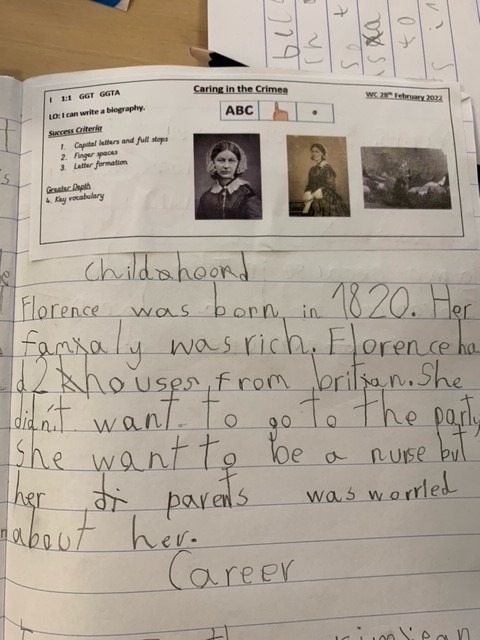 I 1:1 GGT GGTA
Caring in the Crimea
WC 28th February 2022
LO: I can write a biography.
ABC
Success Criteria
1. Capital letters and full stops
2. Finger spaces
3. Letter formation
Greater Depth
4. Key vocabulary
Childahoord
Florence was born in 1820. Her
famxaly was rich. Florence ha
d 2 khouses from britian. She
didn't want to go to the party
she want to be a nurse but
her di parents was worried
about her.
Career